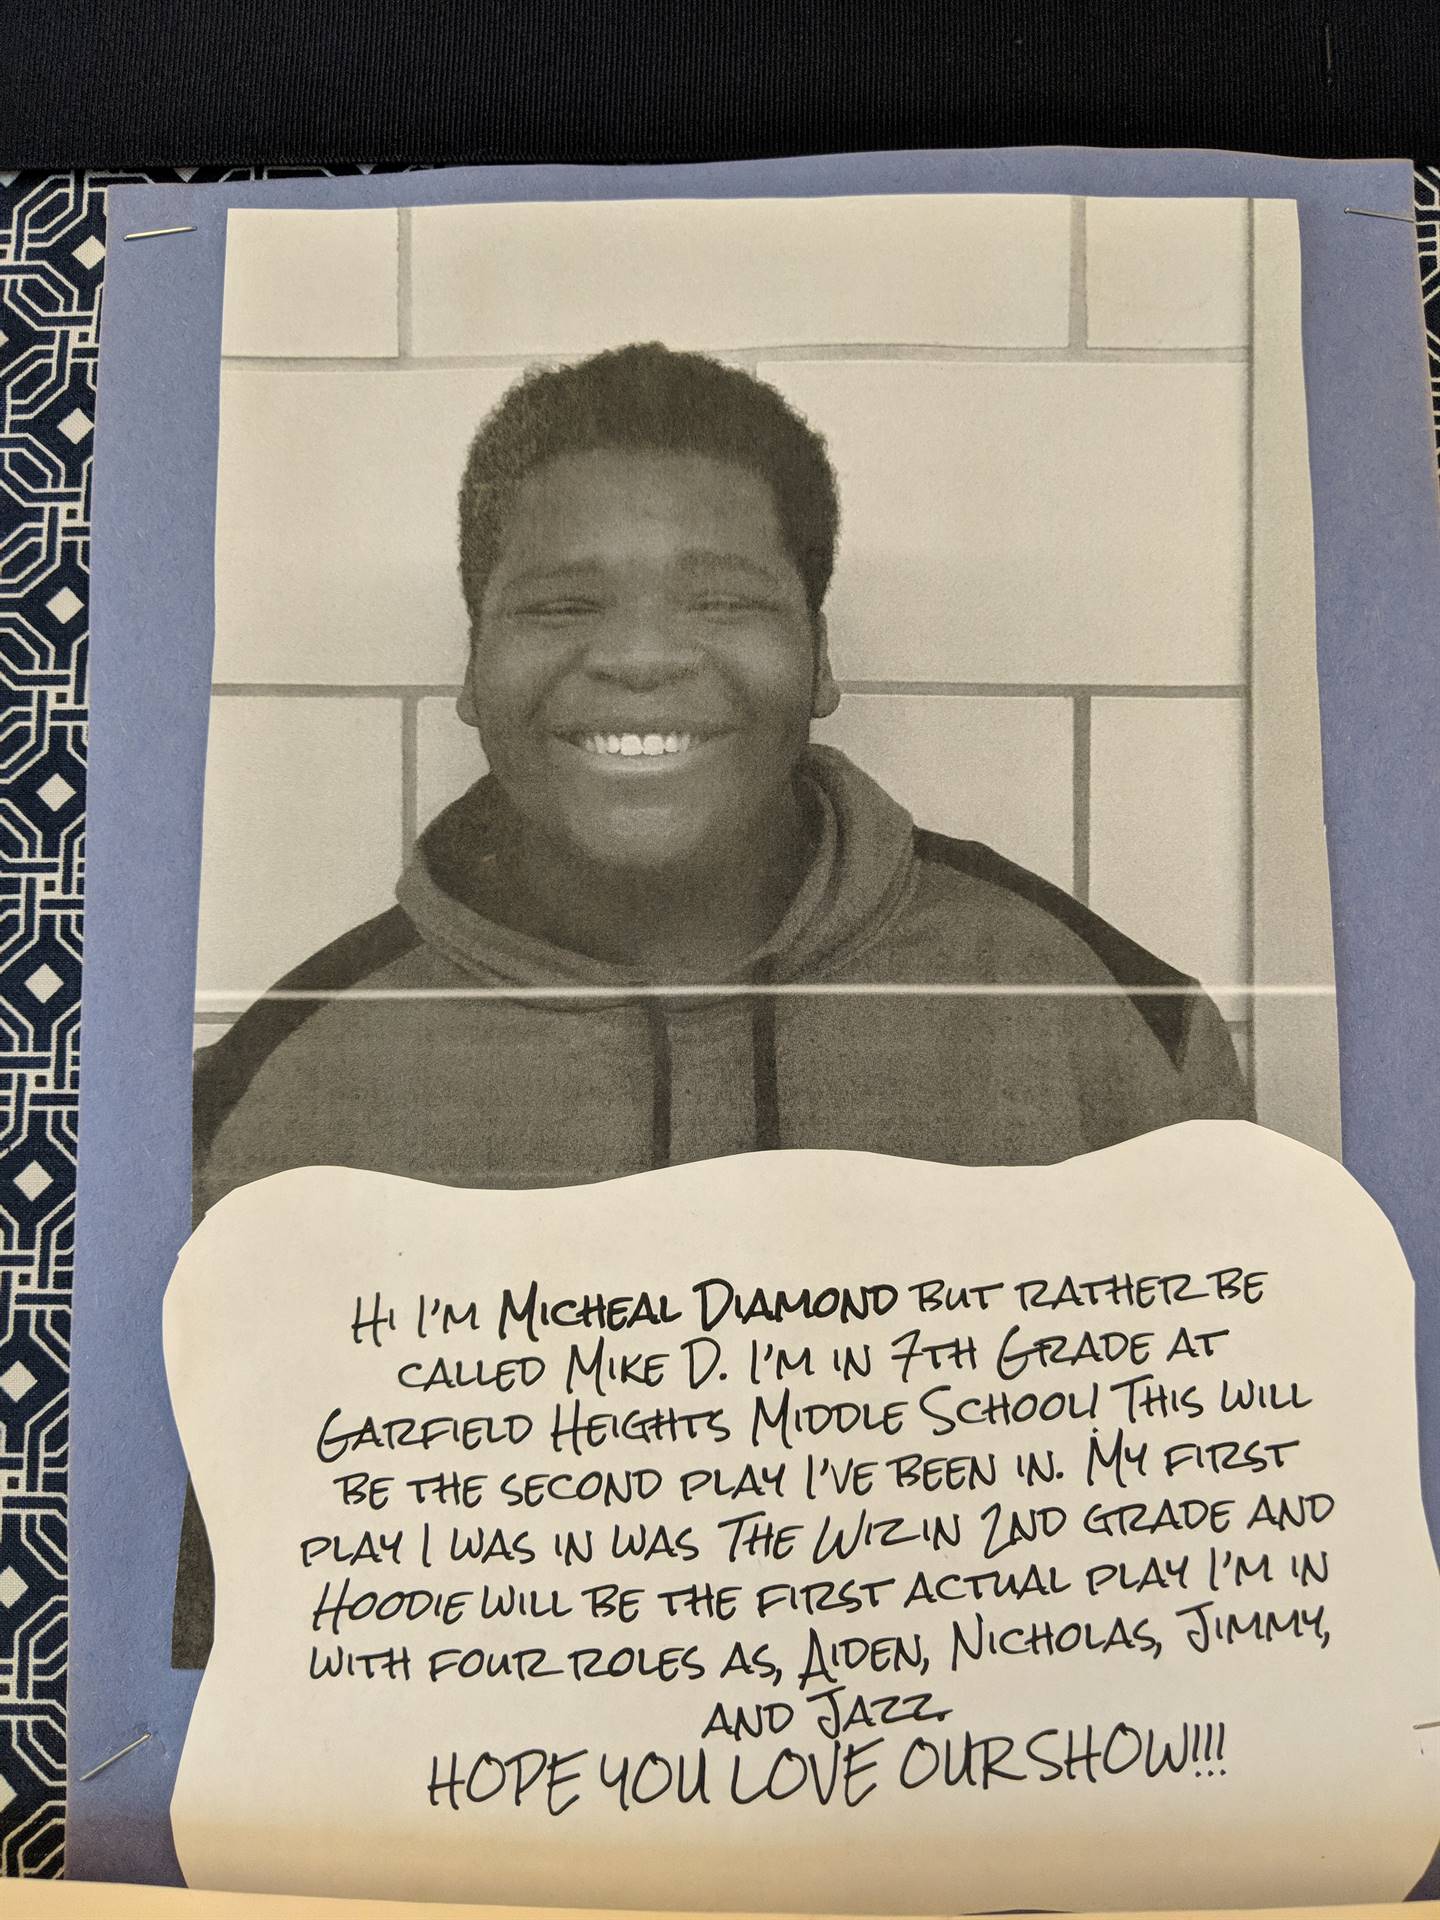 Hi I'm Micheal Diamond but rather be
called Mike D. I'm in 7th Grade at
Garfield Heights Middle School! This will
be the second play I've been in. My first
play I was in was The Wiz in 2nd grade and
Hoodie will be the first actual play I'm in
with four roles as, Aiden, Nicholas, Jimmy,
and Jazz.
HOPE YOU LOVE OUR SHOW!!!